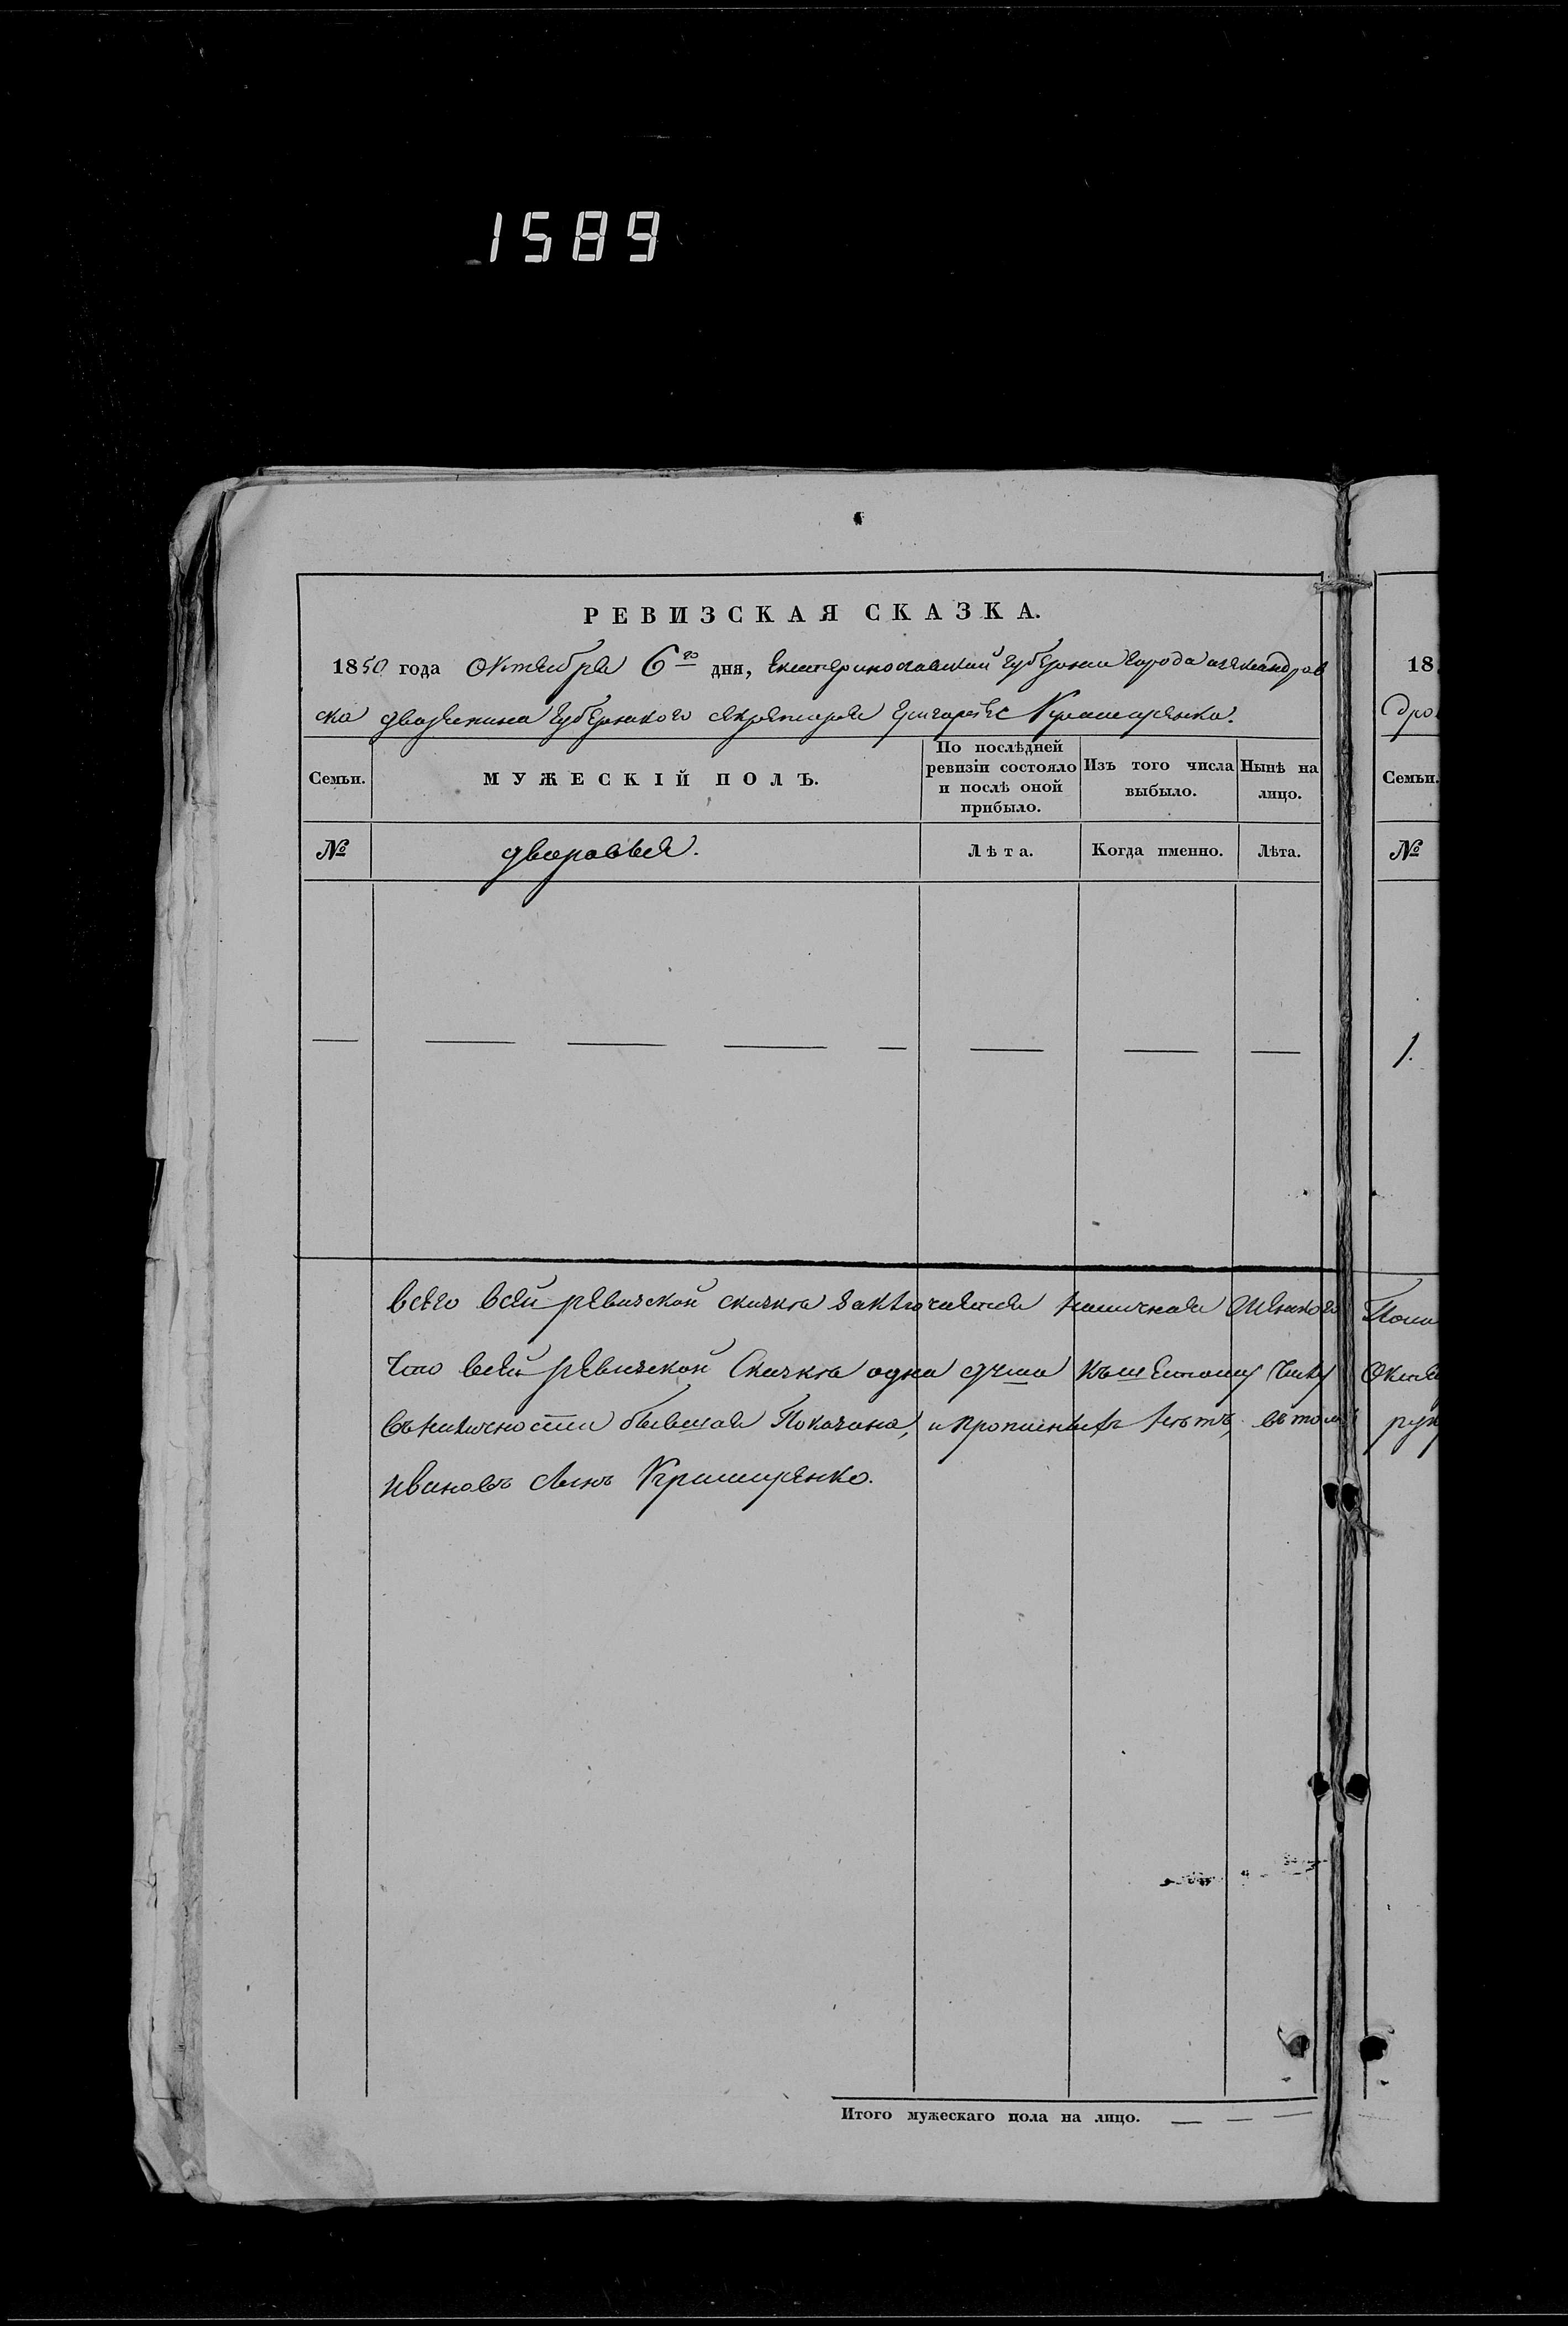 1589
РЕВИЗСКАЯ СКАЗКА.
1850 года Октября 6го дня, Екатеринославской губернии города Александров
ска дворянина губернского секретаря Григорія
Семьи.
МУЖЕСКІЙ ПОЛЪ.
По послѣдней ревизіи состояло и послѣ оной прибыло.
Изъ того числа выбыло.
Нынѣ на лицо.
№
дворовые.
Лѣта.
Когда именно.
Лѣта.
всего всей ревизской сказкѣ заключается наличная женского
Что всей ревизской Сказкѣ одна душа къ
въ наличности бывшая Показана, и прописныхъ нѣтъ, въ томъ
Ивановъ сынъ
Итого мужескаго пола на лицо.
18
дро
Семьи.
№
1.
Поми
Октя
рук